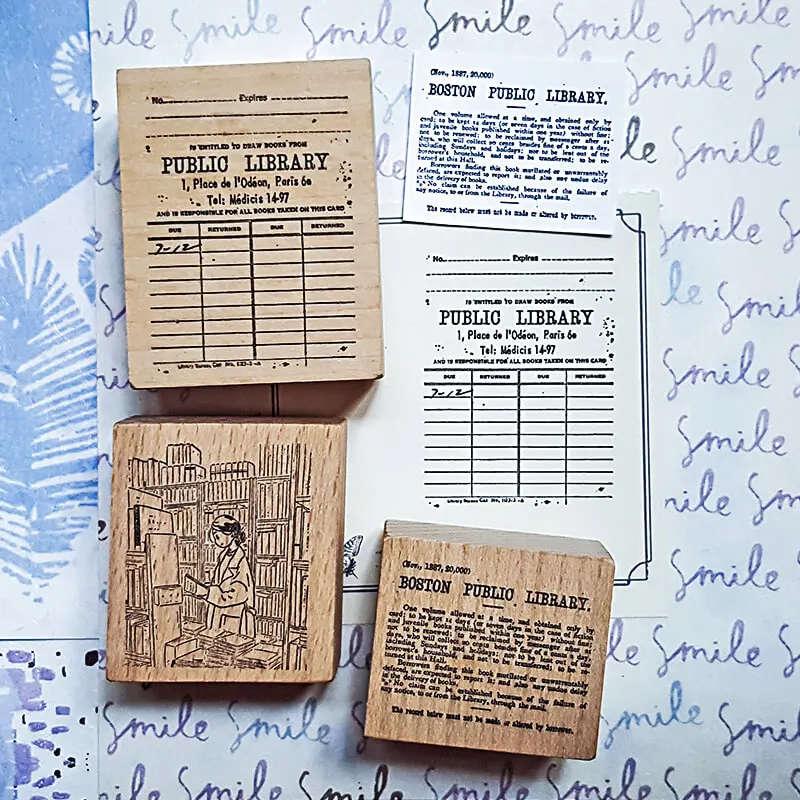 No. Expires
IS ENTITLED TO DRAW BOOKS FROM
PUBLIC LIBRARY
1, Place de l'Odéon, Paris 6e
Tel: Médicis 14-97
AND IS RESPONSIBLE FOR ALL BOOKS TAKEN ON THIS CARD
DUE RETURNED DUE RETURNED
7-12
Library Bureau Cat. No. 1123-3-A
(Nov., 1887, 20,000)
BOSTON PUBLIC LIBRARY.
One volume allowed at a time, and obtained only by
card; to be kept 14 days (or seven days in the case of fiction
and juvenile books published within one year) without fine;
not to be renewed; to be reclaimed by messenger after 21
days, who will collect 20 cents besides fine of 2 cents a day,
including Sundays and holidays; not to be lent out of the
borrower's household, and not to be transferred; to be re-
turned at this Hall.
Borrowers finding this book mutilated or unwarrantably
defaced, are expected to report it; and also any undue delay
in the delivery of books.
*** No claim can be established because of the failure of
any notice, to or from the Library, through the mail.
The record below must not be made or altered by borrower.
No. Expires
IS ENTITLED TO DRAW BOOKS FROM
PUBLIC LIBRARY
1, Place de l'Odéon, Paris 6e
Tel: Médicis 14-97
AND IS RESPONSIBLE FOR ALL BOOKS TAKEN ON THIS CARD
DUE RETURNED DUE RETURNED
7-12
Library Bureau Cat. No. 1123-3-A
(Nov., 1887, 20,000)
BOSTON PUBLIC LIBRARY.
One volume allowed at a time, and obtained only by
card; to be kept 14 days (or seven days in the case of fiction
and juvenile books published within one year) without fine;
not to be renewed; to be reclaimed by messenger after 21
days, who will collect 20 cents besides fine of 2 cents a day,
including Sundays and holidays; not to be lent out of the
borrower's household, and not to be transferred; to be re-
turned at this Hall.
Borrowers finding this book mutilated or unwarrantably
defaced, are expected to report it; and also any undue delay
in the delivery of books.
*** No claim can be established because of the failure of
any notice, to or from the Library, through the mail.
The record below must not be made or altered by borrower.
smile smile smile smile
smile smile
smile
smile
smile
smile
smile
smile
smile smile smile
smile smile smile smile
smile smile smile smile